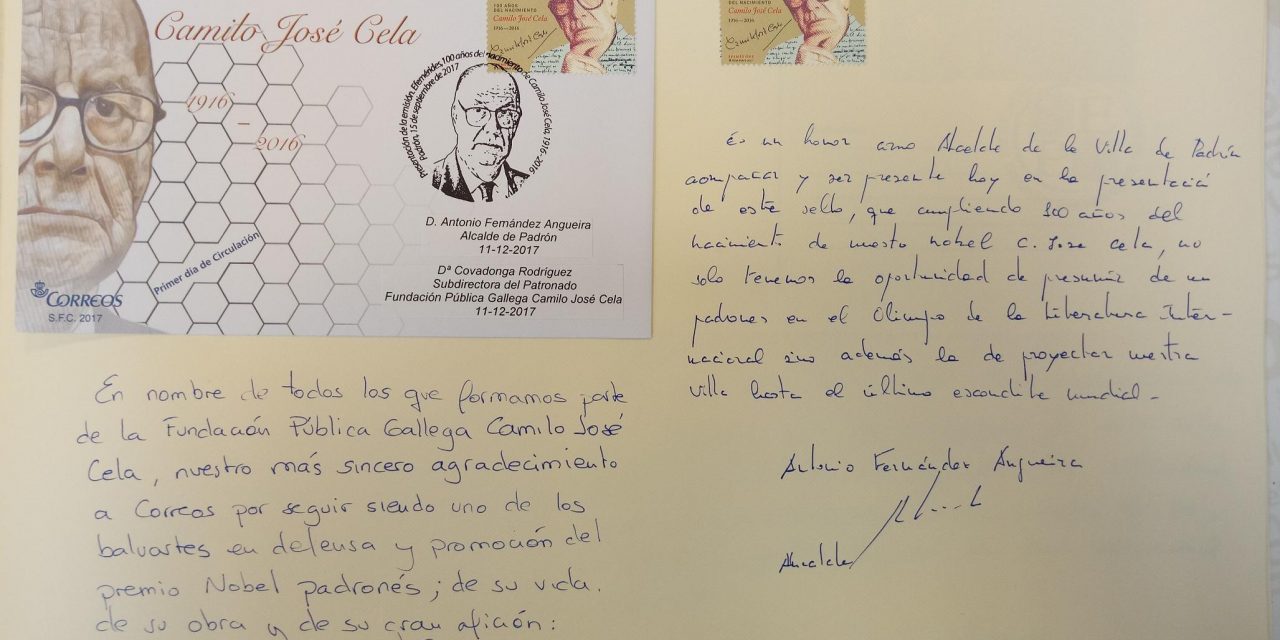 Camilo José Cela
1916
–
2016
Presentación de la emisión. Efemérides. 100 años del nacimiento de Camilo José Cela, 1916-2016
Padrón, 15 de septiembre de 2017
100 AÑOS
DEL NACIMIENTO
Camilo José Cela
1916-2016
D. Antonio Fernández Angueira
Alcalde de Padrón
11-12-2017
Dª Covadonga Rodríguez
Subdirectora del Patronado
Fundación Pública Gallega Camilo José Cela
11-12-2017
Primer día de Circulación
CORREOS
S.F.C. 2017
En nombre de todos los que formamos parte
de la Fundación Pública Gallega Camilo José
Cela, nuestro más sincero agradecimiento
a Correos por seguir siendo uno de los
baluartes en defensa y promoción del
premio Nobel padronés; de su vida.
de su obra y de su gran afición:
DEL NACIMIENTO
Camilo José Cela
1916-2016
És un honor como Alcalde de la Villa de Padrón
acompañar y ser presente hoy en la presentació
de este sello, que cumpliendo 100 años del
nacimiento de nuestro nobel C. Jose Cela, no
solo tenemos la oportunidad de presumir de un
padrones en el Olimpo de la Literatura Inter-
nacional sino además la de proyectar nuestra
villa hasta el último escondite mundial-
Antonio Fernández Angueira
Alcalde